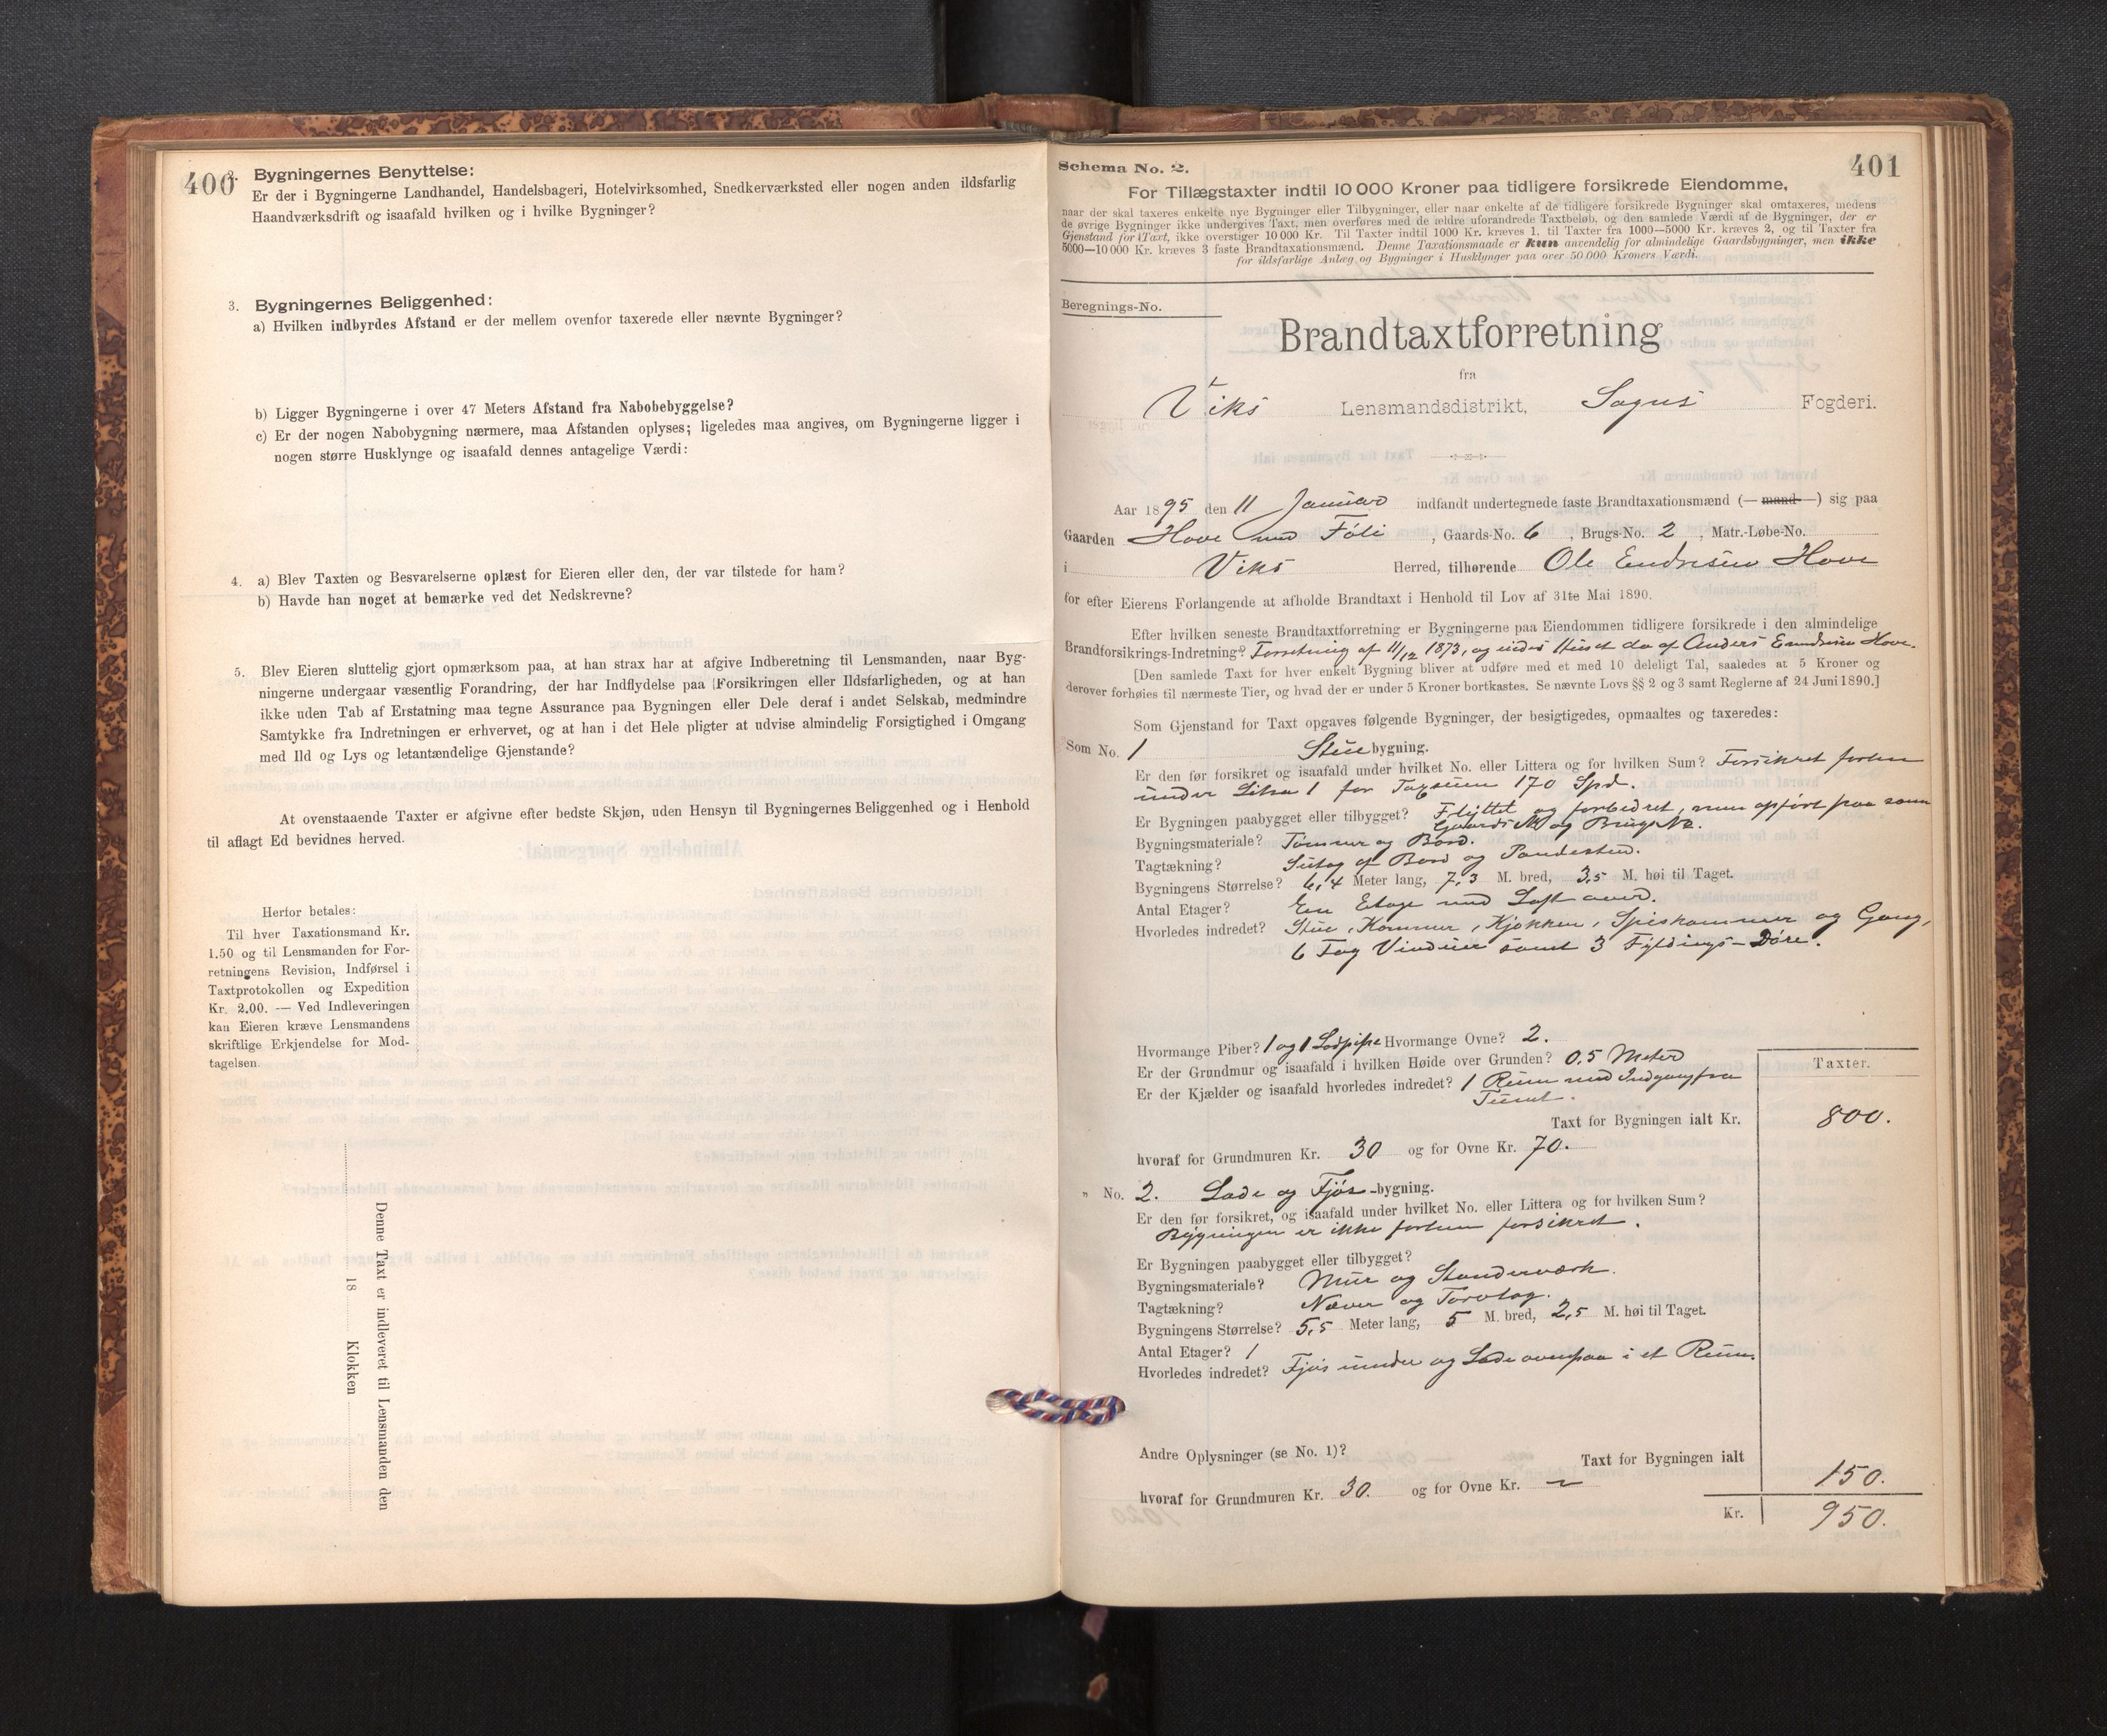 400
2. Bygningernes Benyttelse:
Er der i Bygningerne Landhandel, Handelsbageri, Hotelvirksomhed, Snedkerværksted eller nogen anden ildsfarlig
Haandværksdrift og isaafald hvilken og i hvilke Bygninger?
3. Bygningernes Beliggenhed:
a) Hvilken indbyrdes Afstand er der mellem ovenfor taxerede eller nævnte Bygninger?
b) Ligger Bygningerne i over 47 Meters Afstand fra Nabobebyggelse?
c) Er der nogen Nabobygning nærmere, maa Afstanden oplyses; ligeledes maa angives, om Bygningerne ligger i
nogen større Husklynge og isaafald dennes antagelige Værdi:
4. a) Blev Taxten og Besvarelserne oplæst for Eieren eller den, der var tilstede for ham?
b) Havde han noget at bemærke ved det Nedskrevne?
5. Blev Eieren sluttelig gjort opmærksom paa, at han strax har at afgive Indberetning til Lensmanden, naar Byg-
ningerne undergaar væsentlig Forandring, der har Indflydelse paa Forsikringen eller Ildsfarligheden, og at han
ikke uden Tab af Erstatning maa tegne Assurance paa Bygningen eller Dele deraf i andet Selskab, medmindre
Samtykke fra Indretningen er erhvervet, og at han i det Hele pligter at udvise almindelig Forsigtighed i Omgang
med Ild og Lys og letantændelige Gjenstande?
At ovenstaaende Taxter er afgivne efter bedste Skjøn, uden Hensyn til Bygningernes Beliggenhed og i Henhold
til aflagt Ed bevidnes herved.
Herfor betales:
Til hver Taxationsmand Kr.
1.50 og til Lensmanden for For-
retningens Revision, Indførsel i
Taxtprotokollen og Expedition
Kr. 2.00. — Ved Indleveringen
kan Eieren kræve Lensmandens
skriftlige Erkjendelse for Mod-
tagelsen.
Denne Taxt er indleveret til Lensmanden den
18 Klokken
401
Schema No. 2.
For Tillægstaxter indtil 10 000 Kroner paa tidligere forsikrede Eiendomme,
naar der skal taxeres enkelte nye Bygninger eller Tilbygninger, eller naar enkelte af de tidligere forsikrede Bygninger skal omtaxeres, medens
de øvrige Bygninger ikke undergives Taxt, men overføres med de ældre uforandrede Taxtbeløb, og den samlede Værdi af de Bygninger, der er
Gjenstand for Taxt, ikke overstiger 10 000 Kr. Til Taxter indtil 1000 Kr. kræves 1, til Taxter fra 1000—5000 Kr. kræves 2, og til Taxter fra
5000—10 000 Kr. kræves 3 faste Brandtaxationsmænd. Denne Taxationsmaade er kun anvendelig for almindelige Gaardsbygninger, men ikke
for ildsfarlige Anlæg og Bygninger i Husklynger paa over 50 000 Kroners Værdi.
Beregnings-No.
Brandtaxtforretning
fra
Viks Lensmandsdistrikt, Sogns Fogderi.
Aar 1895 den 11 Januar indfandt undertegnede faste Brandtaxationsmænd (— mand —) sig paa
Gaarden Hove med Føli, Gaards-No. 6, Brugs-No. 2, Matr.-Løbe-No.
i Viks Herred, tilhørende Ole Endresen Hove
for efter Eierens Forlangende at afholde Brandtaxt i Henhold til Lov af 31te Mai 1890.
Efter hvilken seneste Brandtaxtforretning er Bygningerne paa Eiendommen tidligere forsikrede i den almindelige
Brandforsikrings-Indretning? Forretning af 11/12 1873, og eiedes Huset da af Anders Hove.
[Den samlede Taxt for hver enkelt Bygning bliver at udføre med et med 10 deleligt Tal, saaledes at 5 Kroner og
derover forhøies til nærmeste Tier, og hvad der er under 5 Kroner bortkastes. Se nævnte Lovs §§ 2 og 3 samt Reglerne af 24 Juni 1890.]
Som Gjenstand for Taxt opgaves følgende Bygninger, der besigtigedes, opmaaltes og taxeredes:
Som No. 1 Stuebygning.
Er den før forsikret og isaafald under hvilket No. eller Littera og for hvilken Sum? Forsikret forhen
under Litra 1 for Taxsum 170 Spd.
Er Bygningen paabygget eller tilbygget? Flyttet og forbedret, men opført paa samme
Gaards No og Brugs No.
Bygningsmateriale? Tømmer og Bord.
Tagtækning? Sutag af Bord og Pandesten.
Bygningens Størrelse? 6,4 Meter lang, 7,3 M. bred, 3,5 M. høi til Taget.
Antal Etager? Een Etage med Loft over.
Hvorledes indredet? Stue, Kammer, Kjøkken, Spiskammer og Gang,
6 Fag Vinduer samt 3 Fyldings-Døre.
Hvormange Piber? 1 og 1 Lodpipe Hvormange Ovne? 2.
Er der Grundmur og isaafald i hvilken Høide over Grunden? 0,5 Meter
Er der Kjælder og isaafald hvorledes indredet? 1 Rum med Indgang fra
Tunet.
Taxter.
Taxt for Bygningen ialt Kr. 800.
hvoraf for Grundmuren Kr. 30 og for Ovne Kr. 70.
" No. 2. Lade og Fjøs-bygning.
Er den før forsikret, og isaafald under hvilket No. eller Littera og for hvilken Sum?
Bygningen er ikke forhen forsikret.
Er Bygningen paabygget eller tilbygget?
Bygningsmateriale? Mur og Standerværk.
Tagtækning? Næver og Torvtag.
Bygningens Størrelse? 5,5 Meter lang, 5 M. bred, 2,5 M. høi til Taget.
Antal Etager? 1
Hvorledes indredet? Fjøs under og Lade ovenpaa i et Rum.
Andre Oplysninger (se No. 1)?
Taxt for Bygningen ialt 150.
hvoraf for Grundmuren Kr. 30. og for Ovne Kr. —
Kr. 950.